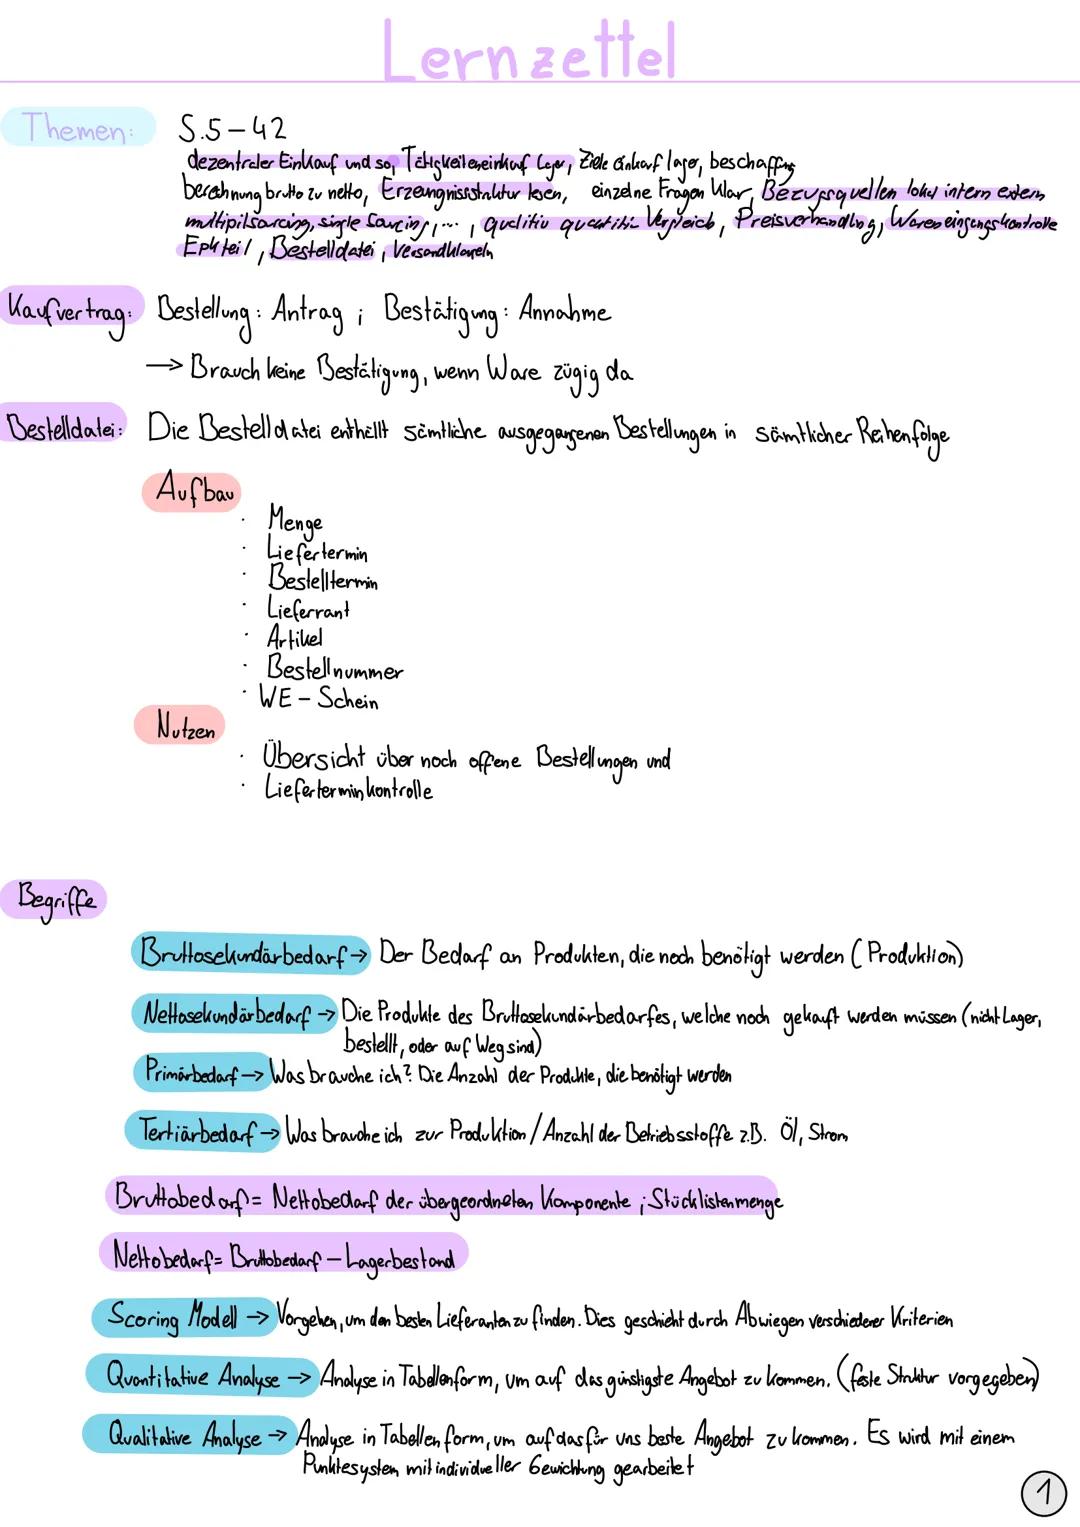 Lernzettel
Themen: S.5-42
dezentraler Einkauf und so, Tätigkeiten einkauf Lager, Ziele einkauf lager, beschaffung
berechnung brutto zu netto, Erzeugnissstruktur lesen, einzelne Fragen klar, Bezugsquellen lokal intern extern
multipilsorcing, single Sourcing, ..., qualitiv quantitiv Vergleich, Preisverhandlng, Wareneingangskontrolle
Epk teil, Bestelldatei, Versandklauseln
Kaufvertrag: Bestellung: Antrag ; Bestätigung: Annahme
→ Brauch keine Bestätigung, wenn Ware zügig da
Bestelldatei: Die Bestelldatei enthällt sämtliche ausgegangenen Bestellungen in sämtlicher Reihenfolge
Aufbau
· Menge
· Liefertermin
· Bestelltermin
· Lieferrant
· Artikel
· Bestellnummer
· WE - Schein
Nutzen
· Übersicht über noch offene Bestellungen und
· Lieferterminkontrolle
Begriffe
Bruttosekundärbedarf → Der Bedarf an Produkten, die noch benötigt werden (Produktion)
Nettosekundärbedarf → Die Produkte des Bruttosekundärbedarfes, welche noch gekauft werden müssen (nicht Lager,
bestellt, oder auf Weg sind)
Primärbedarf → Was brauche ich? Die Anzahl der Produkte, die benötigt werden
Tertiärbedarf → Was brauche ich zur Produktion / Anzahl der Betriebsstoffe z.B. Öl, Strom
Bruttobedarf = Nettobedarf der übergeordneten Komponente ; Stücklistenmenge
Nettobedarf = Bruttobedarf - Lagerbestand
Scoring Modell → Vorgehen, um den besten Lieferanten zu finden. Dies geschieht durch Abwiegen verschiedener Kriterien
Quantitative Analyse → Analyse in Tabellenform, um auf das günstigste Angebot zu kommen. (feste Struktur vorgegeben)
Qualitative Analyse → Analyse in Tabellenform, um auf das für uns beste Angebot zu kommen. Es wird mit einem
Punktesystem mit individueller Gewichtung gearbeitet
1